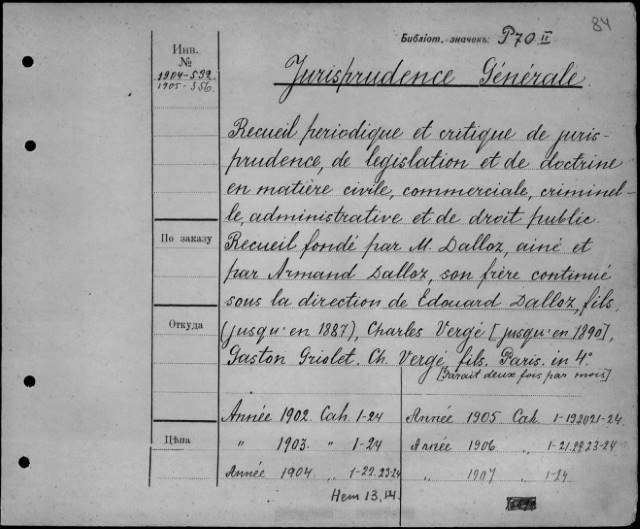 84
Библіот. значекъ P70 II
Инв.
№
1904-532
1905-356
Jurisprudence Générale
Recueil periodique et critique de juris-
prudence, de legislation et de doctrine
en matière civile, commerciale, criminel-
le, administrative et de droit public.
По заказу
Recueil fondé par M. Dalloz, ainé et
par Armand Dalloz, son frère continué
sous la direction de Edouard Dalloz, fils
Откуда
(jusqu'en 1887), Charles Vergé [jusqu'en 1890],
Gaston Griolet. Ch. Vergé fils. Paris. in 4°
[Parait deux fois par mois]
Année 1902 Cah. 1-24
Année 1905 Cah. 1-19.20.21-24.
Цѣна
" 1903. " 1-24
Année 1906 " 1-21.22.23-24
Année 1904 " 1-22.23-24
" 1907 " 1-24
Нет 13, 14.